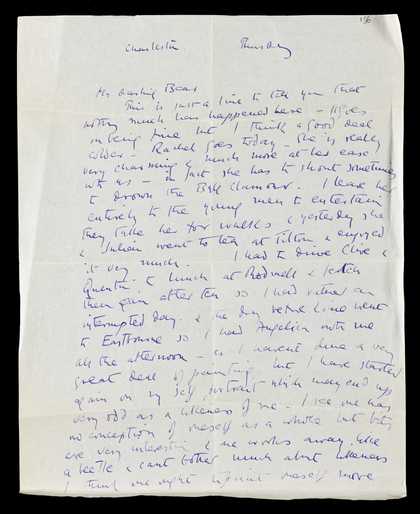 116
Charleston Thursday
My darling Bear
This is just a line to tell you that
nothing much has happened here –
in being fine but I think a good deal
colder – Rachel goes today – she is really
very charming & much more at her ease
with us – in fact she has to shout sometimes
to drown the Bell clamour. I leave her
entirely to the young men to entertain
they take her for walks & yesterday she
& Julian went to tea at Tilton & enjoyed
it very much. I had to drive Clive &
Quentin to lunch at Rodmell & fetch
them again after tea so I had rather an
interrupted day. & the day before Lone went
to Eastbourne so I had Angelica with me
all the afternoon – so I havent done a very
great deal of painting but I have started
again on my self portrait which may end up
very odd as a likeness of me – I see one has
no conception of oneself as a whole but bits
are very interesting & one works away like
a beetle & cant bother much about likeness
I think one might oneself more